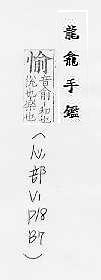 龍龕手鑑
愉
音俞和也
悅也樂也
(心部V1
P18
B7)